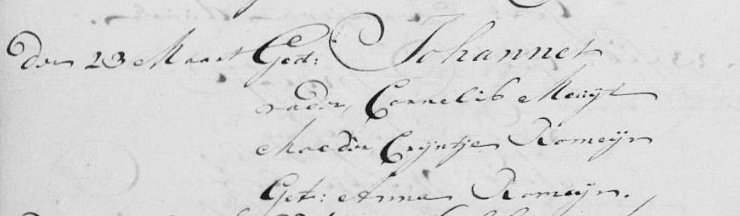 Den 23 Maart Ged: Johannes
vader, Cornelis Muijt
Moeder Crijntje Romeijn
Get: Anna Romeijn.